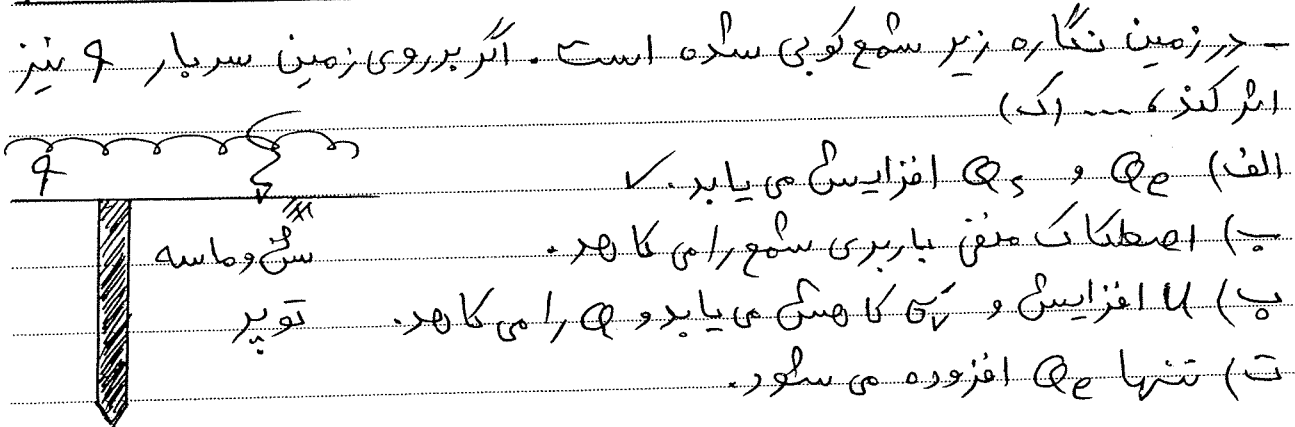 - در زمین نگاره زیر شمع کوبی شده است. اگر بر روی زمین سربار q نیز
اثر کند، ... (ک)
الف) Qe و Qs افزایش می یابد. ✓
ب) اصطکاک منفی باربری شمع را می کاهد.
پ) u افزایش و σ̄v کاهش می یابد و Q را می کاهد.
ت) تنها Qe افزوده می شود.
q
شن و ماسه
توپر